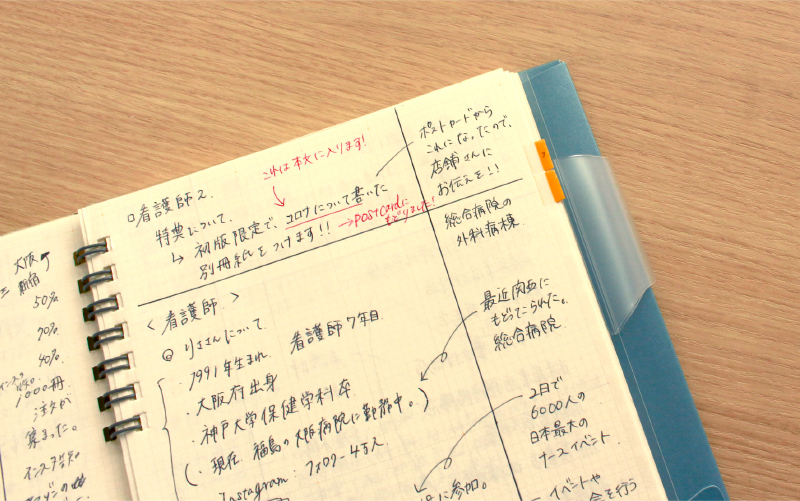 大阪
新宿
50%
70%
40%
1000冊
注文が
集まった。
これは本文に入ります!
□看護師2.
特典について.
↳ 初版限定で、コロナについて書いた
別冊紙をつけます!!
→postcardに
もどりました!
ポストカードから
これになったので、
店舗さんに
お伝えを!!
総合病院の
外科病棟.
〈看護師.〉
りささんについて.
看護師7年目
・1991年生まれ.
・大阪府出身
・神戸大学保健学科卒
(・現在 福島の大阪病院に勤務中。)
Instagram: フォロワー4万人
に参加。
最近関西に
もどってこられた。
総合病院.
2日で
6000人の
日本最大の
ナースイベント.
イベントや
会を行う